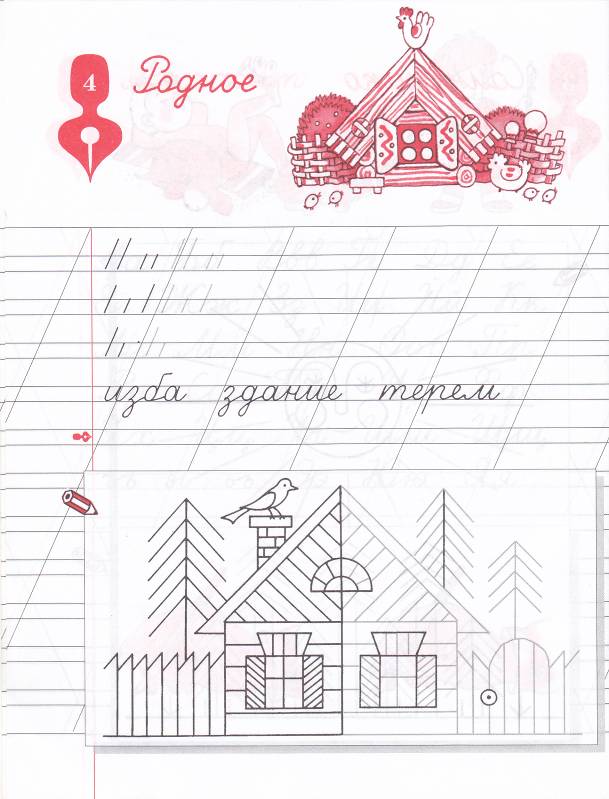 4
Родное
изба здание терем